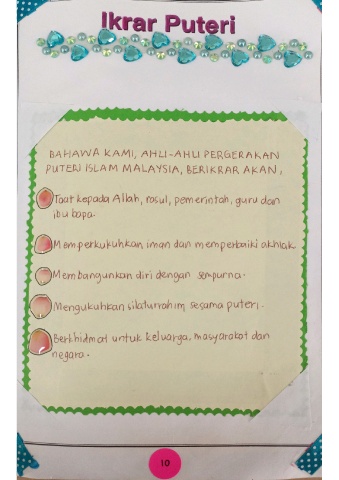 Ikrar Puteri
BAHAWA KAMI, AHLI-AHLI PERGERAKAN
PUTERI ISLAM MALAYSIA, BERIKRAR AKAN,
Taat kepada Allah, rasul, pemerintah, guru dan
ibu bapa.
Memperkukuhkan iman dan memperbaiki akhlak
Membangunkan diri dengan sempurna.
Mengukuhkan silaturrahim sesama puteri.
Berkhidmat untuk keluarga, masyarakat dan
negara.
10